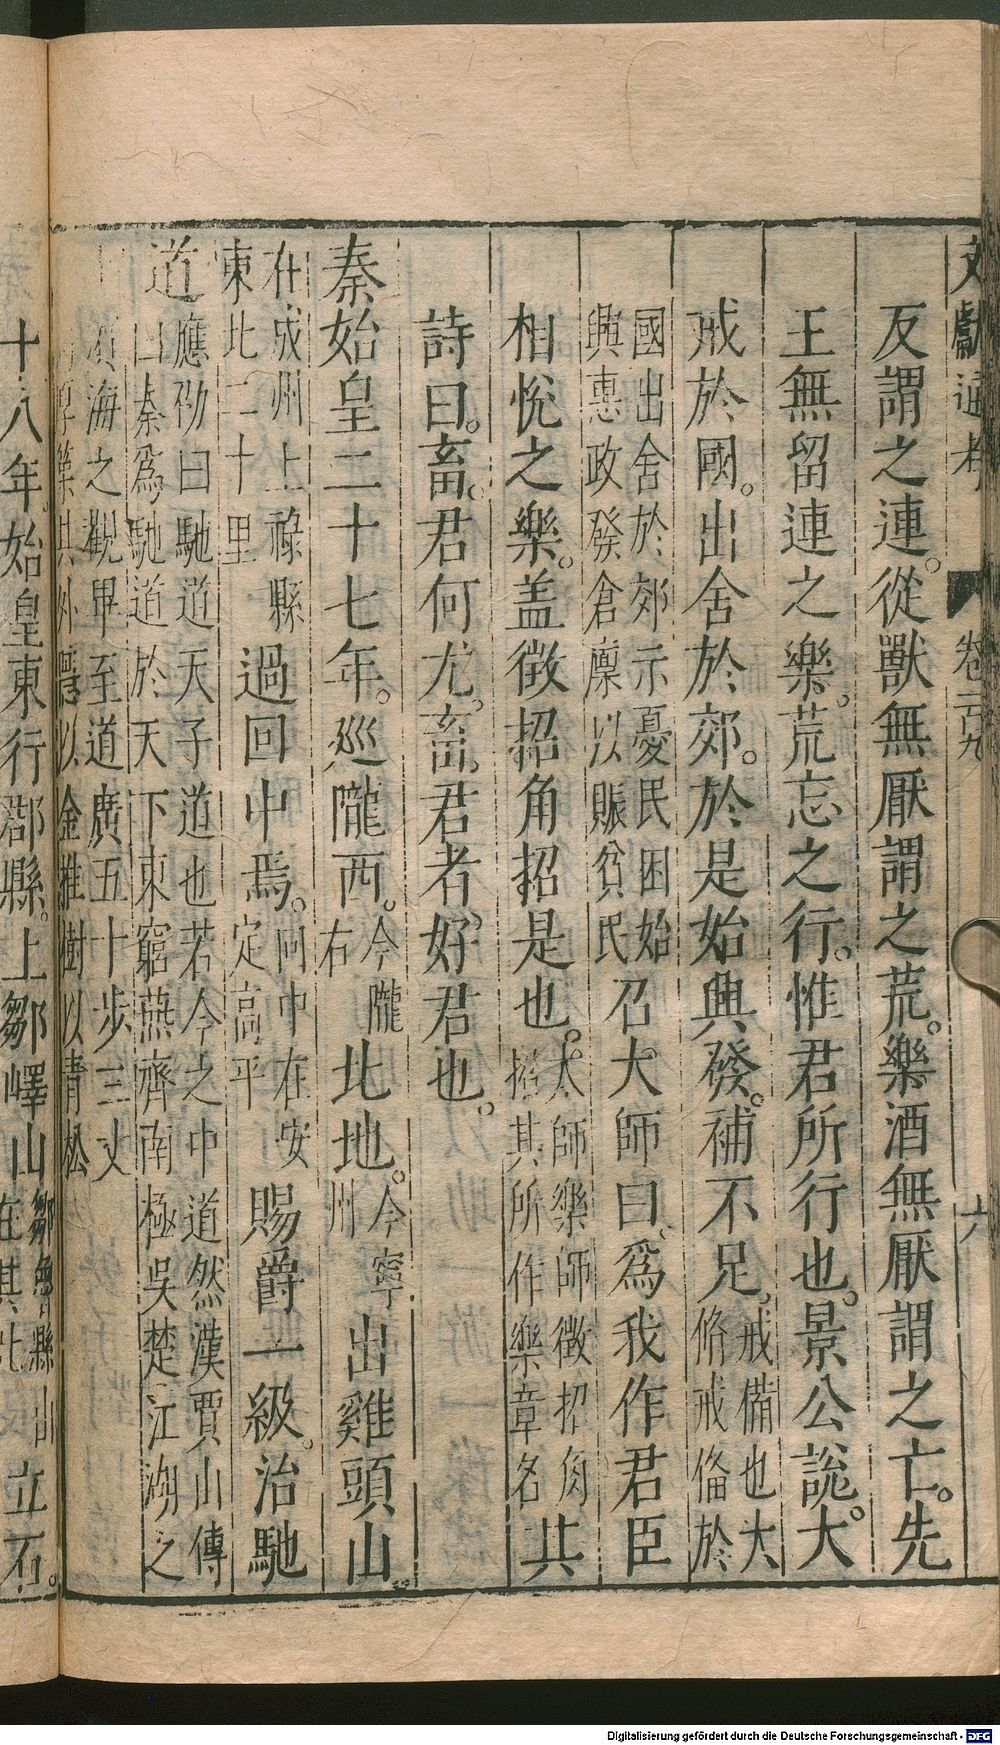 文獻通考 卷一百九 六
反謂之連。從獸無厭謂之荒。樂酒無厭謂之亡。先
王無留連之樂。荒忘之行。惟君所行也。景公說。大
戒於國。出舍於郊。於是始興發。補不足。戒備也大
脩戒俻於
國出舍於郊示憂民困始
興惠政發倉廩以賑貧民召大師曰、爲我作君臣
相悅之樂。盖徴招角招是也。太師樂師徴招角
招其所作樂章名其
詩曰。畜。君何尤。畜君者、好君也。
秦始皇二十七年。巡隴西。今隴
右北地。今寧
州出雞頭山
在成州上祿縣
東北二十里過回中焉。回中在安
定高平賜爵一級。治馳
道應劭曰馳道天子道也若今之中道然漢賈山傳
曰秦爲馳道於天下東窮燕齊南極吳楚江湖之
濱海之觀畢至道廣五十步三丈
厚築其外隱以金椎樹以青松
十八年。始皇東行郡縣。上鄒嶧山鄒魯縣山
在其北立石。
Digitalisierung gefördert durch die Deutsche Forschungsgemeinschaft - DFG